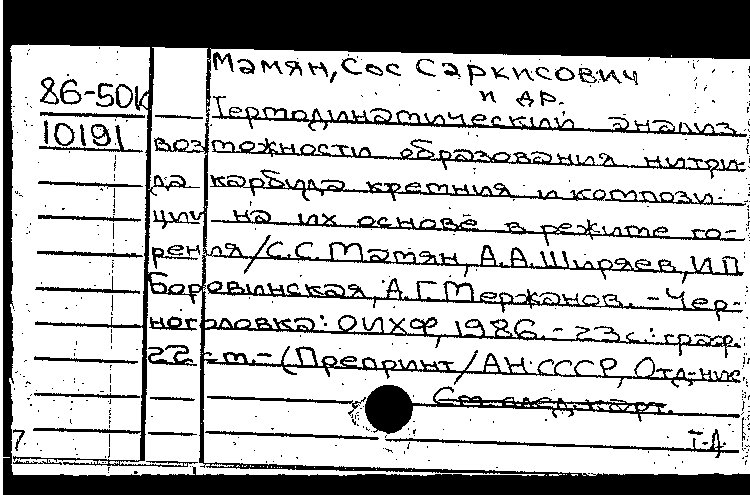 Мамян, Сос Саркисович
и др.
86-50
10191
Термодинамический анализ
возможности образования нитри-
да карбида кремния и компози-
ции на их основе в режиме го-
рения / С.С. Мамян, А.А. Ширяев, И.П.
Боровинская, А.Г. Мержанов. - Чер-
ноголовка: ОИХФ, 1986. - 23 с.: граф.
22 см. - (Препринт / АН СССР, Отд-ние
См. след. карт.
7
Т-Д